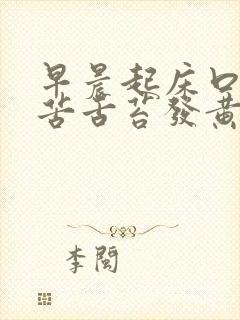 早晨起床口
苦舌苔發黃
李閩